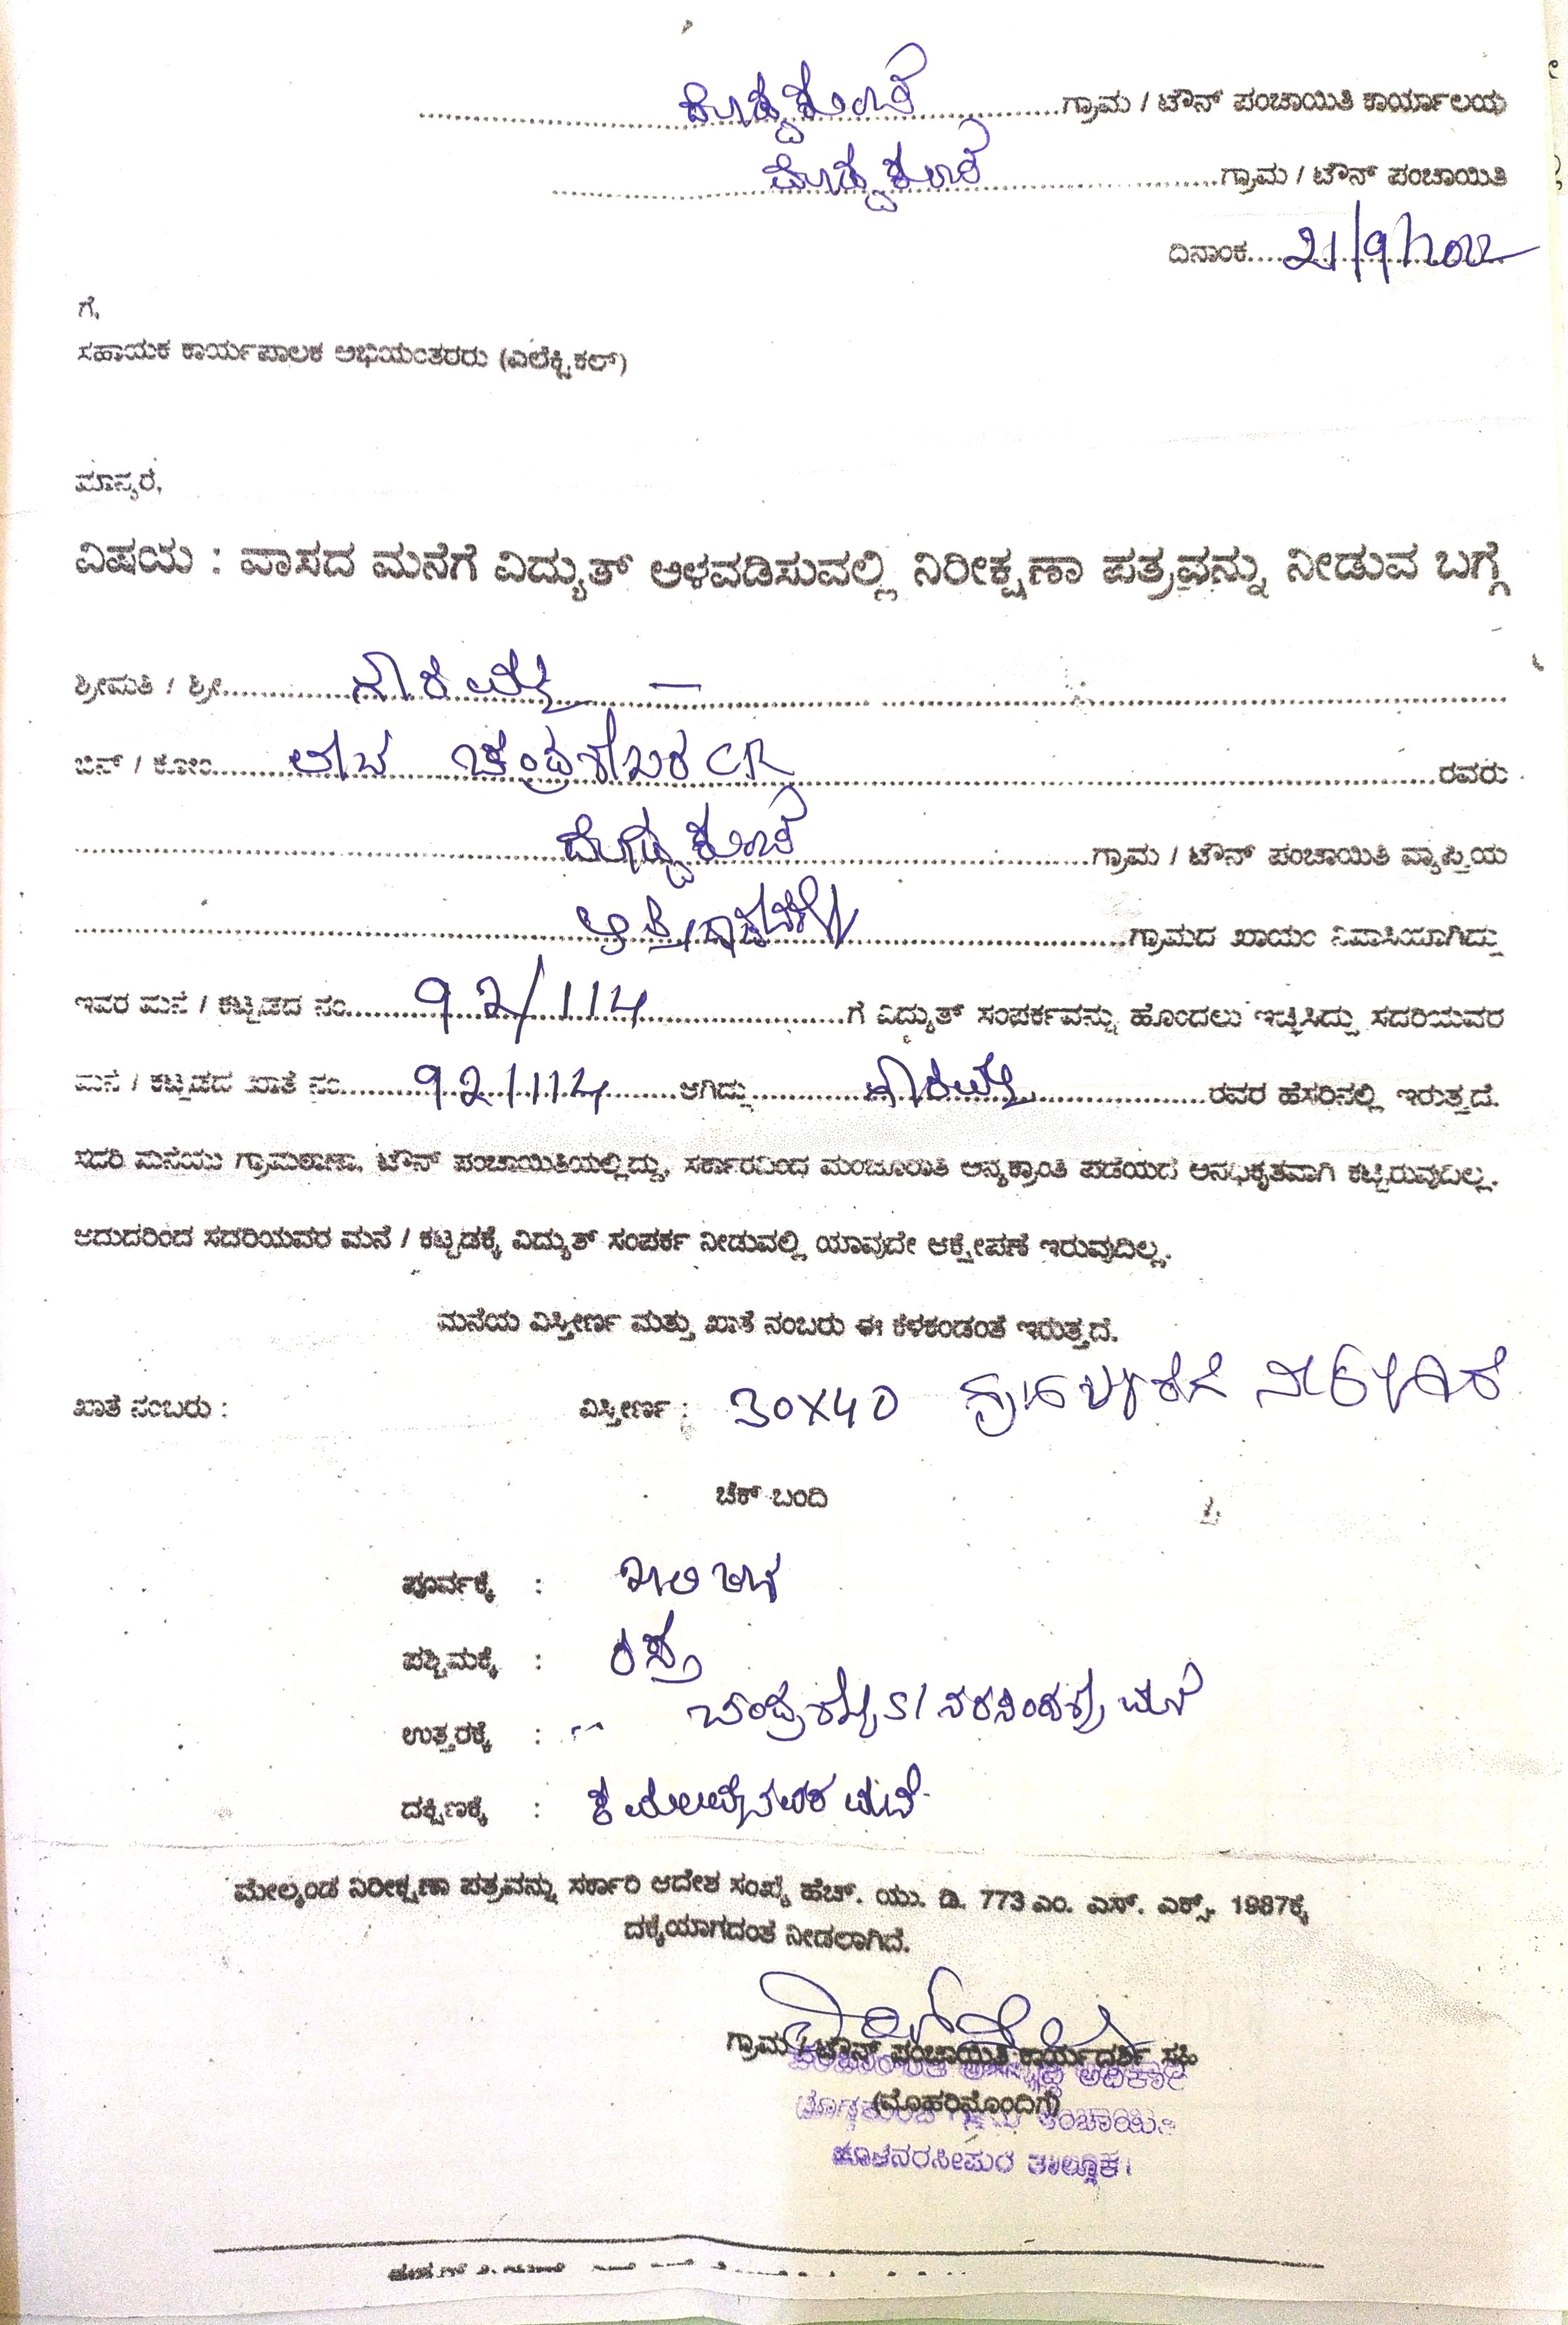 ದೊಡ್ಡಕುಂಚೆ ಗ್ರಾಮ / ಟೌನ್ ಪಂಚಾಯಿತಿ ಕಾರ್ಯಾಲಯ
ದೊಡ್ಡಕುಂಚೆ ಗ್ರಾಮ / ಟೌನ್ ಪಂಚಾಯಿತಿ
ದಿನಾಂಕ 21/9/2022
ಗೆ,
ಸಹಾಯಕ ಕಾರ್ಯಪಾಲಕ ಅಭಿಯಂತರರು (ಎಲೆಕ್ಟ್ರಿಕಲ್)
ಮಾನ್ಯರೆ,
ವಿಷಯ : ವಾಸದ ಮನೆಗೆ ವಿದ್ಯುತ್ ಅಳವಡಿಸುವಲ್ಲಿ ನಿರೀಕ್ಷಣಾ ಪತ್ರವನ್ನು ನೀಡುವ ಬಗ್ಗೆ
ಶ್ರೀಮತಿ / ಶ್ರೀ ಗೌರಮ್ಮ
ಬಿನ್ / ಕೋಂ ಲೇಟ್ ಚಂದ್ರಶೇಖರ CR ರವರು
ದೊಡ್ಡಕುಂಚೆ ಗ್ರಾಮ / ಟೌನ್ ಪಂಚಾಯಿತಿ ವ್ಯಾಪ್ತಿಯ
ಗ್ರಾಮದ ಖಾಯಂ ನಿವಾಸಿಯಾಗಿದ್ದು
ಇವರ ಮನೆ / ಕಟ್ಟಡದ ನಂ 92/114 ಗೆ ವಿದ್ಯುತ್ ಸಂಪರ್ಕವನ್ನು ಹೊಂದಲು ಇಚ್ಛಿಸಿದ್ದು ಸದರಿಯವರ
ಮನೆ / ಕಟ್ಟಡದ ಖಾತೆ ನಂ 92/114 ಆಗಿದ್ದು ಗೌರಮ್ಮ ರವರ ಹೆಸರಿನಲ್ಲಿ ಇರುತ್ತದೆ.
ಸದರಿ ಮನೆಯು ಗ್ರಾಮಠಾಣಾ, ಟೌನ್ ಪಂಚಾಯಿತಿಯಲ್ಲಿದ್ದು, ಸರ್ಕಾರದಿಂದ ಮಂಜೂರಾತಿ ಅನ್ಯಕ್ರಾಂತಿ ಪಡೆಯದೆ ಅನಧಿಕೃತವಾಗಿ ಕಟ್ಟಿರುವುದಿಲ್ಲ.
ಆದುದರಿಂದ ಸದರಿಯವರ ಮನೆ / ಕಟ್ಟಡಕ್ಕೆ ವಿದ್ಯುತ್ ಸಂಪರ್ಕ ನೀಡುವಲ್ಲಿ ಯಾವುದೇ ಆಕ್ಷೇಪಣೆ ಇರುವುದಿಲ್ಲ.
ಮನೆಯ ವಿಸ್ತೀರ್ಣ ಮತ್ತು ಖಾತೆ ನಂಬರು ಈ ಕೆಳಕಂಡಂತೆ ಇರುತ್ತದೆ.
ಖಾತೆ ನಂಬರು : ವಿಸ್ತೀರ್ಣ : 30X40
ಚೆಕ್ ಬಂದಿ
ಪೂರ್ವಕ್ಕೆ :
ಪಶ್ಚಿಮಕ್ಕೆ : ರಸ್ತೆ
ಉತ್ತರಕ್ಕೆ :
ದಕ್ಷಿಣಕ್ಕೆ : ಕಮಲಮ್ಮನವರ ಮನೆ
ಮೇಲ್ಕಂಡ ನಿರೀಕ್ಷಣಾ ಪತ್ರವನ್ನು ಸರ್ಕಾರಿ ಆದೇಶ ಸಂಖ್ಯೆ ಹೆಚ್. ಯು. ಡಿ. 773 ಎಂ. ಎಸ್. ಎಕ್ಸ್. 1987ಕ್ಕೆ
ದಕ್ಕೆಯಾಗದಂತೆ ನೀಡಲಾಗಿದೆ.
ಗ್ರಾಮ / ಟೌನ್ ಪಂಚಾಯಿತಿ ಕಾರ್ಯದರ್ಶಿ ಸಹಿ
ಪಂಚಾಯಿತಿ ಅಭಿವೃದ್ಧಿ ಅಧಿಕಾರಿ
(ಮೊಹರಿನೊಂದಿಗೆ)
ದೊಡ್ಡಕುಂಚೆ ಗ್ರಾಮ ಪಂಚಾಯಿತಿ
ಹೊಳೆನರಸೀಪುರ ತಾಲ್ಲೂಕು.